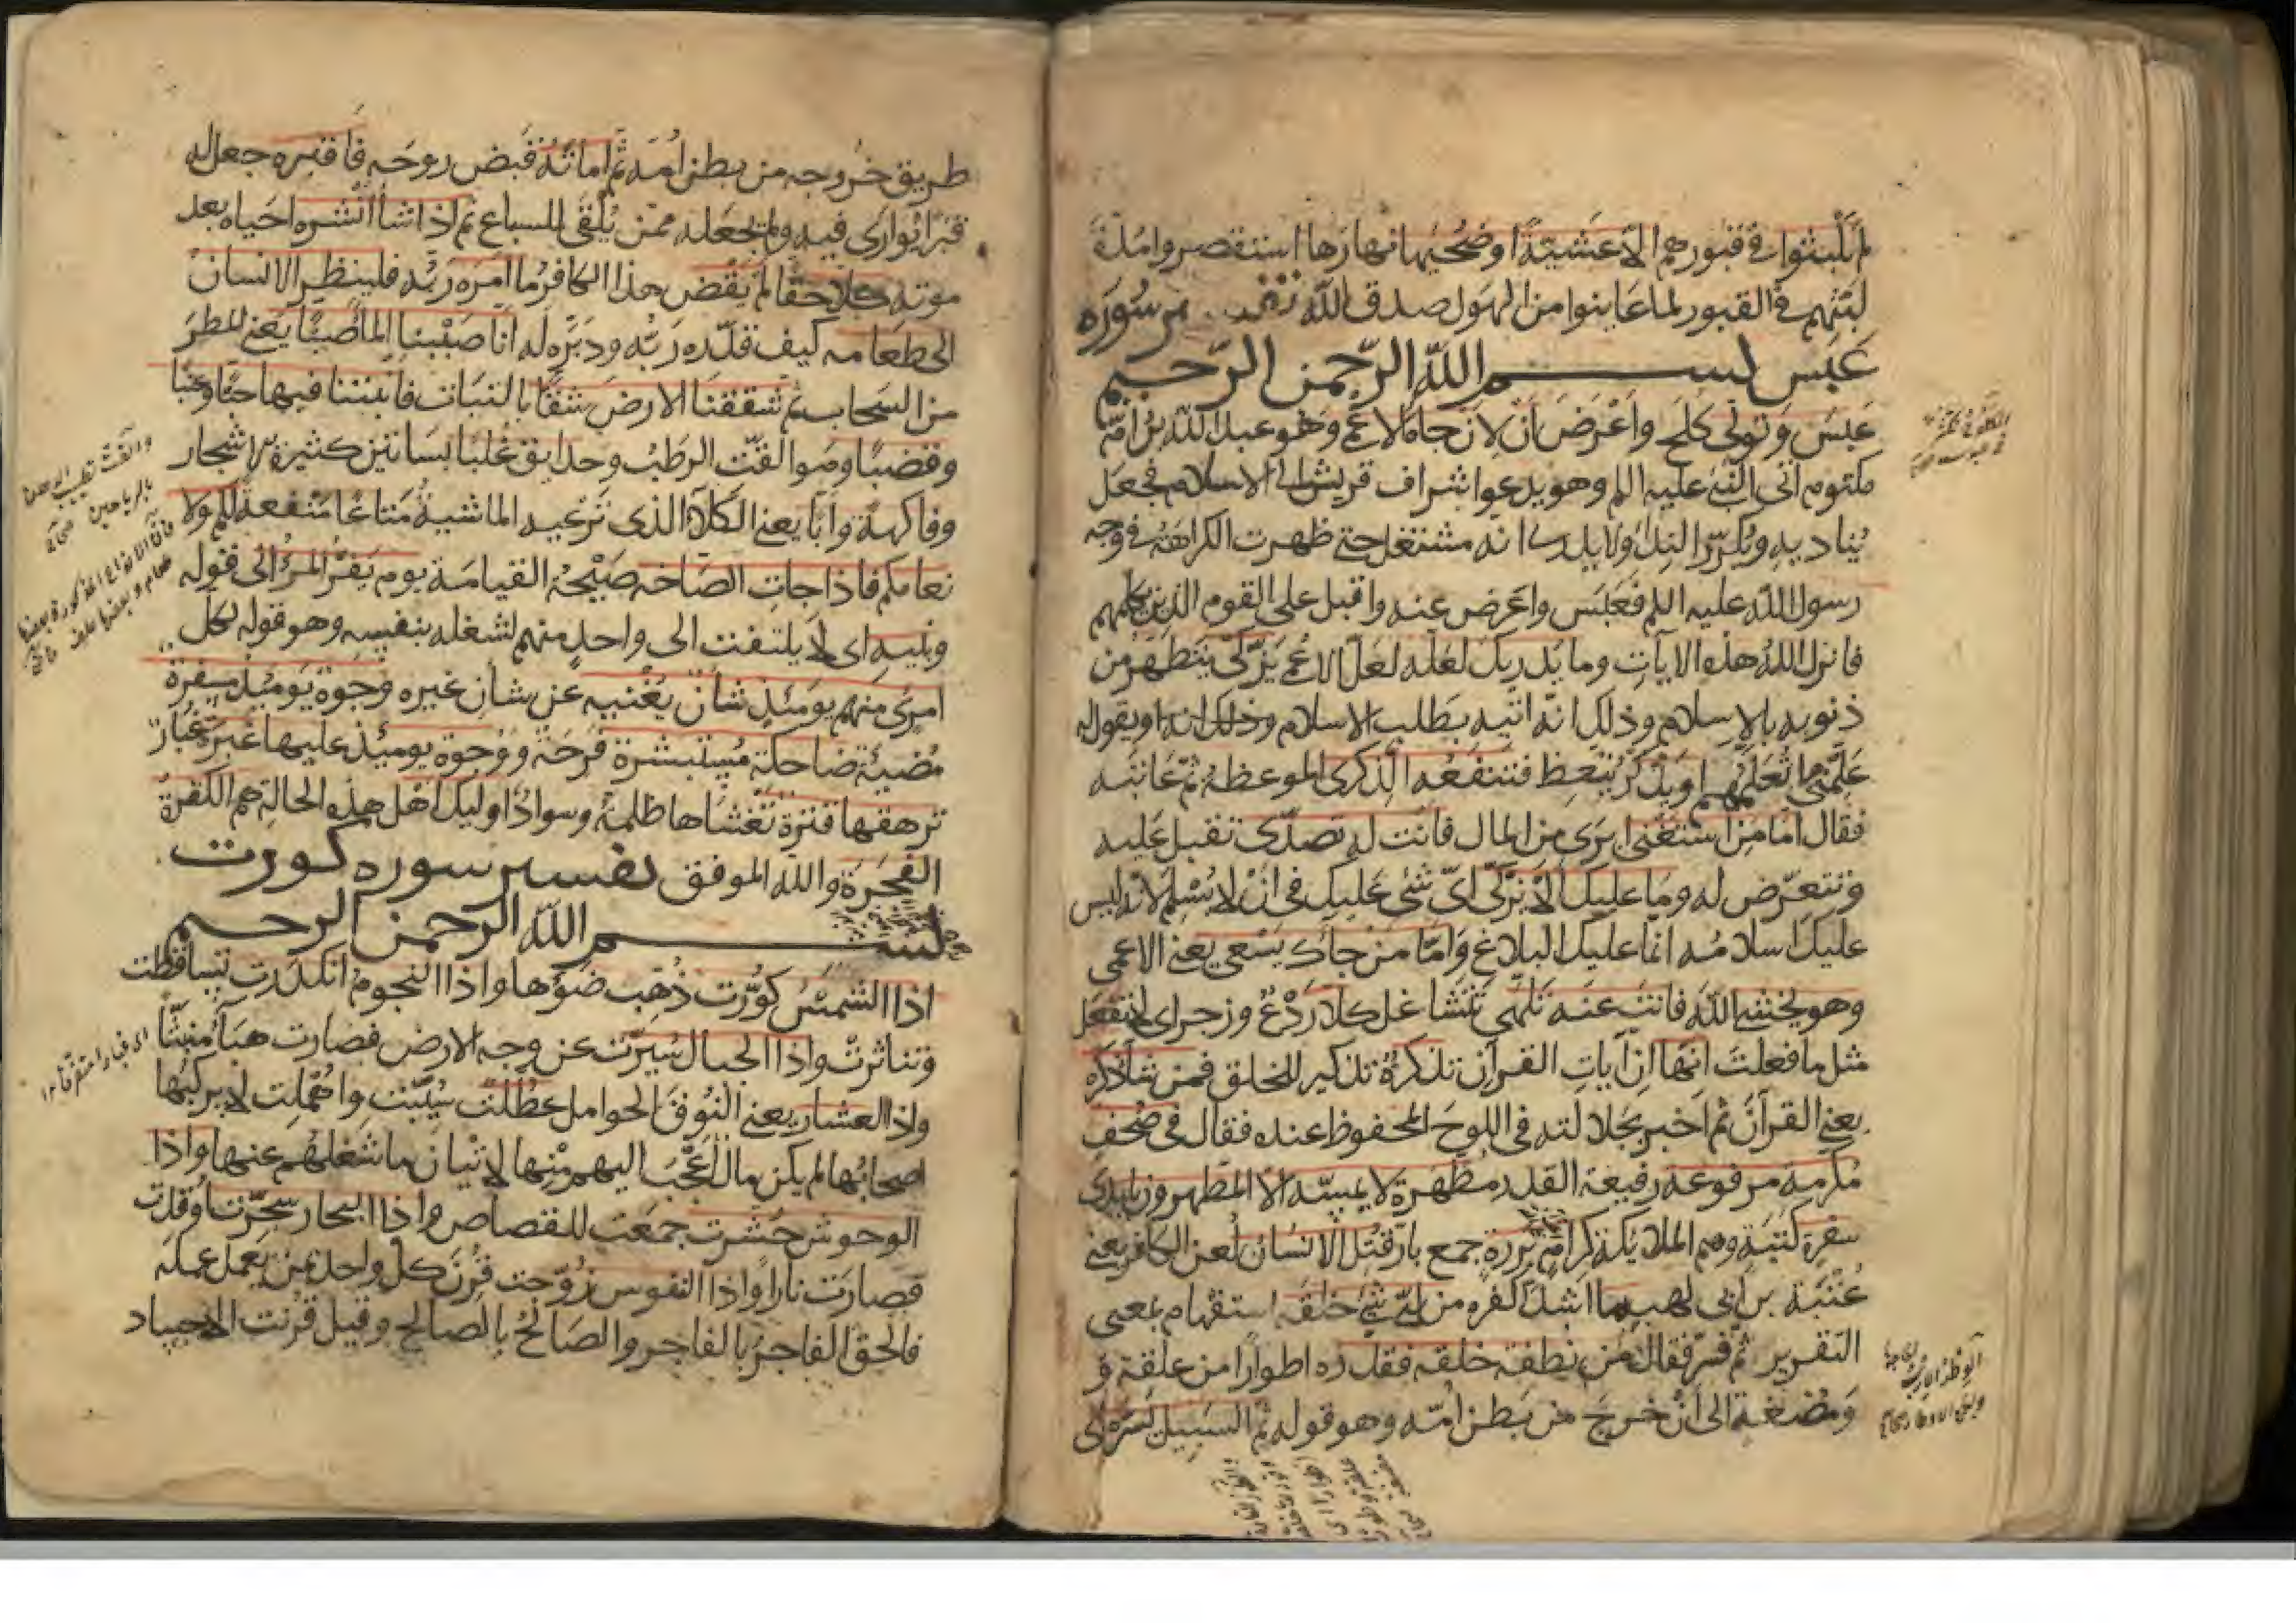 لم يلبثوا في قبورهم الا عشية او ضحيها نهارها استقصروا مدة
لبثهم في القبور لما عاينوا من الهول صدق الله سورة
عبس بسم الله الرحمن الرحيم
عبس وتولى كلح واعرض ان لان جاه الاعمى وهو عبد الله بن ام
مكتوم اتى النبي عليه السلم وهو يدعوا اشراف قريش الى الاسلام فجعل
يناديه ويكرر النداء ولا يدرى انه مشتغل حتى ظهرت الكراهة في وجه
رسول الله عليه السلم فعبس واعرض عنه واقبل على القوم الذين يكلمهم
فانزل الله هذه الايات وما يدريك لعله لعل الاعمى يزكى يتطهر من
ذنوبه بالاسلام وذلك انه اتيه بطلب الاسلام وذلك انه او يقول له
علمنى مما تعلم او يذكر يتعظ فتنفعه الذكرى الموعظة ثم عاتبه
فقال اما من استغنى اثرى من المال فانت له تصدى تقبل عليه
وتتعرض له وما عليك الا يزكى اى شئ عليك في ان لا يسلم لانه ليس
عليك اسلامه انما عليك البلاغ واما من جاك يسعى يعنى الاعمى
وهو يخشى الله فانت عنه تلهى تتشاغل كلا ردع وزجر اى لا تفعل
مثل ما فعلت انها ان آيات القرآن تذكرة تذكير للخلق فمن شا ذكره
يعنى القرآن ثم اخبر بجلالته في اللوح المحفوظ عنده فقال في صحف
مكرمة مرفوعة رفيعة القدر مطهرة لا يمسه الا المطهرون بايدى
سفرة كتبة وهم الملايكة كرام بررة جمع بار قتل الانسان لعن الكافر يعنى
عتبة بن ابى لهب ما اشد كفره من اى شئ خلقه استفهام بمعنى
التقرير ثم فسر فقال من نطفة خلقه فقدره اطوارا من علقة و
ومضغة الى ان خرج من بطن امه وهو قوله ثم السبيل يسره اى
طريق خروجه من بطن امه ثم اماته قبض روحه فاقبره جعل له
قبرا يوارى فيه ولم يجعله ممن يلقى للسباع ثم اذا شا انشره احياه بعد
موته كلا حقا لم يقض هذا الكافر ما امره ربه فلينظر الانسان
الى طعامه كيف قدره ربه ودبره له انا صببنا الما صبا يعنى المطر
من السحاب ثم شققنا الارض شقا بالنبات فانبتنا فيها حبا وعنبا
وقضبا وهو القت الرطب وحدايق غلبا بساتين كثيرة الاشجار
وفاكهة وابا يعنى الكلأ الذى ترعيه الماشية متاعا منفعة لكم ولا
نعامكم فاذا جات الصاخه صيحة القيامة يوم يفر المرء الى قوله
وبنيه اى لا يلتفت الى واحد منهم لشغله بنفسه وهو قوله لكل
امرئ منهم يومئذ شأن يغنيه عن شان غيره وجوة يوميذ مسفرة
مضيئة ضاحكة مستبشرة فرحة ووجوة يوميذ عليها غبرة غبار
ترهقها قترة تغشاها ظلمة وسواد اوليك اهل هذه الحالة هم الكفرة
الفجرة والله الموفق تفسير سوره كورت
بسم الله الرحمن الرحيم
اذا الشمس كورت ذهب ضوؤها واذا النجوم انكدرت تساقطت
وتناثرت واذا الجبال سيرت عن وجه الارض فصارت هبآ منبثا
واذا العشار يعنى النوق الحوامل عطلت سيبت واهملت لا يركبها
اصحابها لم يكن مال اعجب اليهم منها لاتيان ما شغلهم عنها واذا
الوحوش حشرت جمعت للقصاص واذا البحار سجرت اوقدت
فصارت نارا واذا النفوس زوجت قرن كل واحد بمن يعمل عمله
فالحق الفاجر بالفاجر والصالح بالصالح وقيل قرنت الاجساد